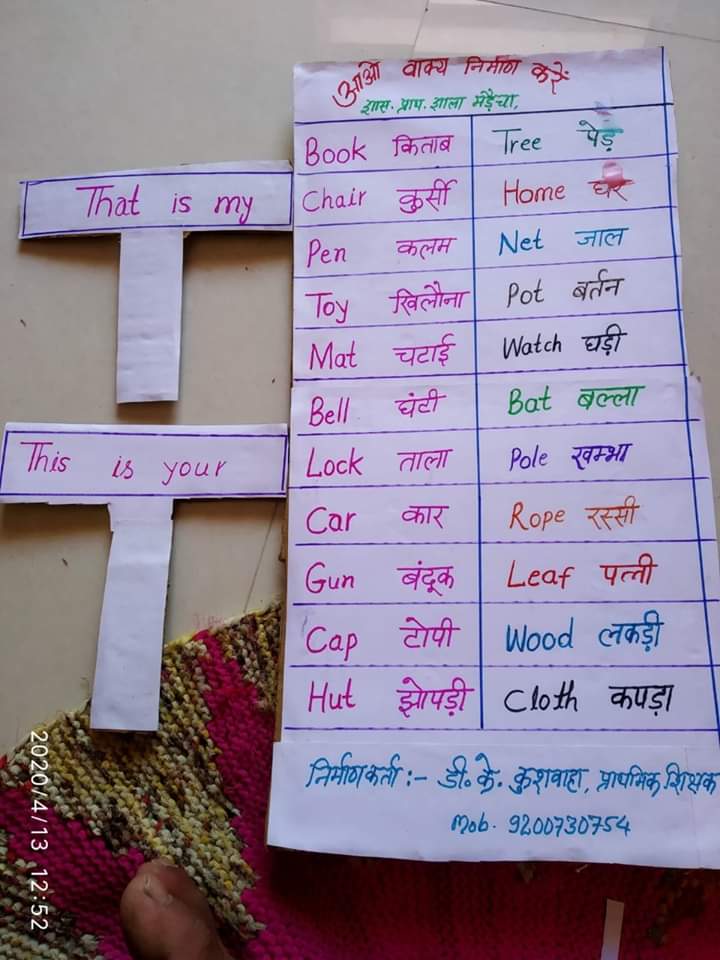 आओ वाक्य निर्माण करें
शास. प्राथ. शाला मड़ैचा,
That is my
This is your
Book किताब Tree पेड़
Chair कुर्सी Home घर
Pen कलम Net जाल
Toy खिलौना Pot बर्तन
Mat चटाई Watch घड़ी
Bell घंटी Bat बल्ला
Lock ताला Pole खम्भा
Car कार Rope रस्सी
Gun बंदूक Leaf पत्ती
Cap टोपी Wood लकड़ी
Hut झोपड़ी Cloth कपड़ा
निर्माणकर्ता :- डी. के. कुशवाहा, प्राथमिक शिक्षक
Mob. 9200730754
2020/4/13 12:52